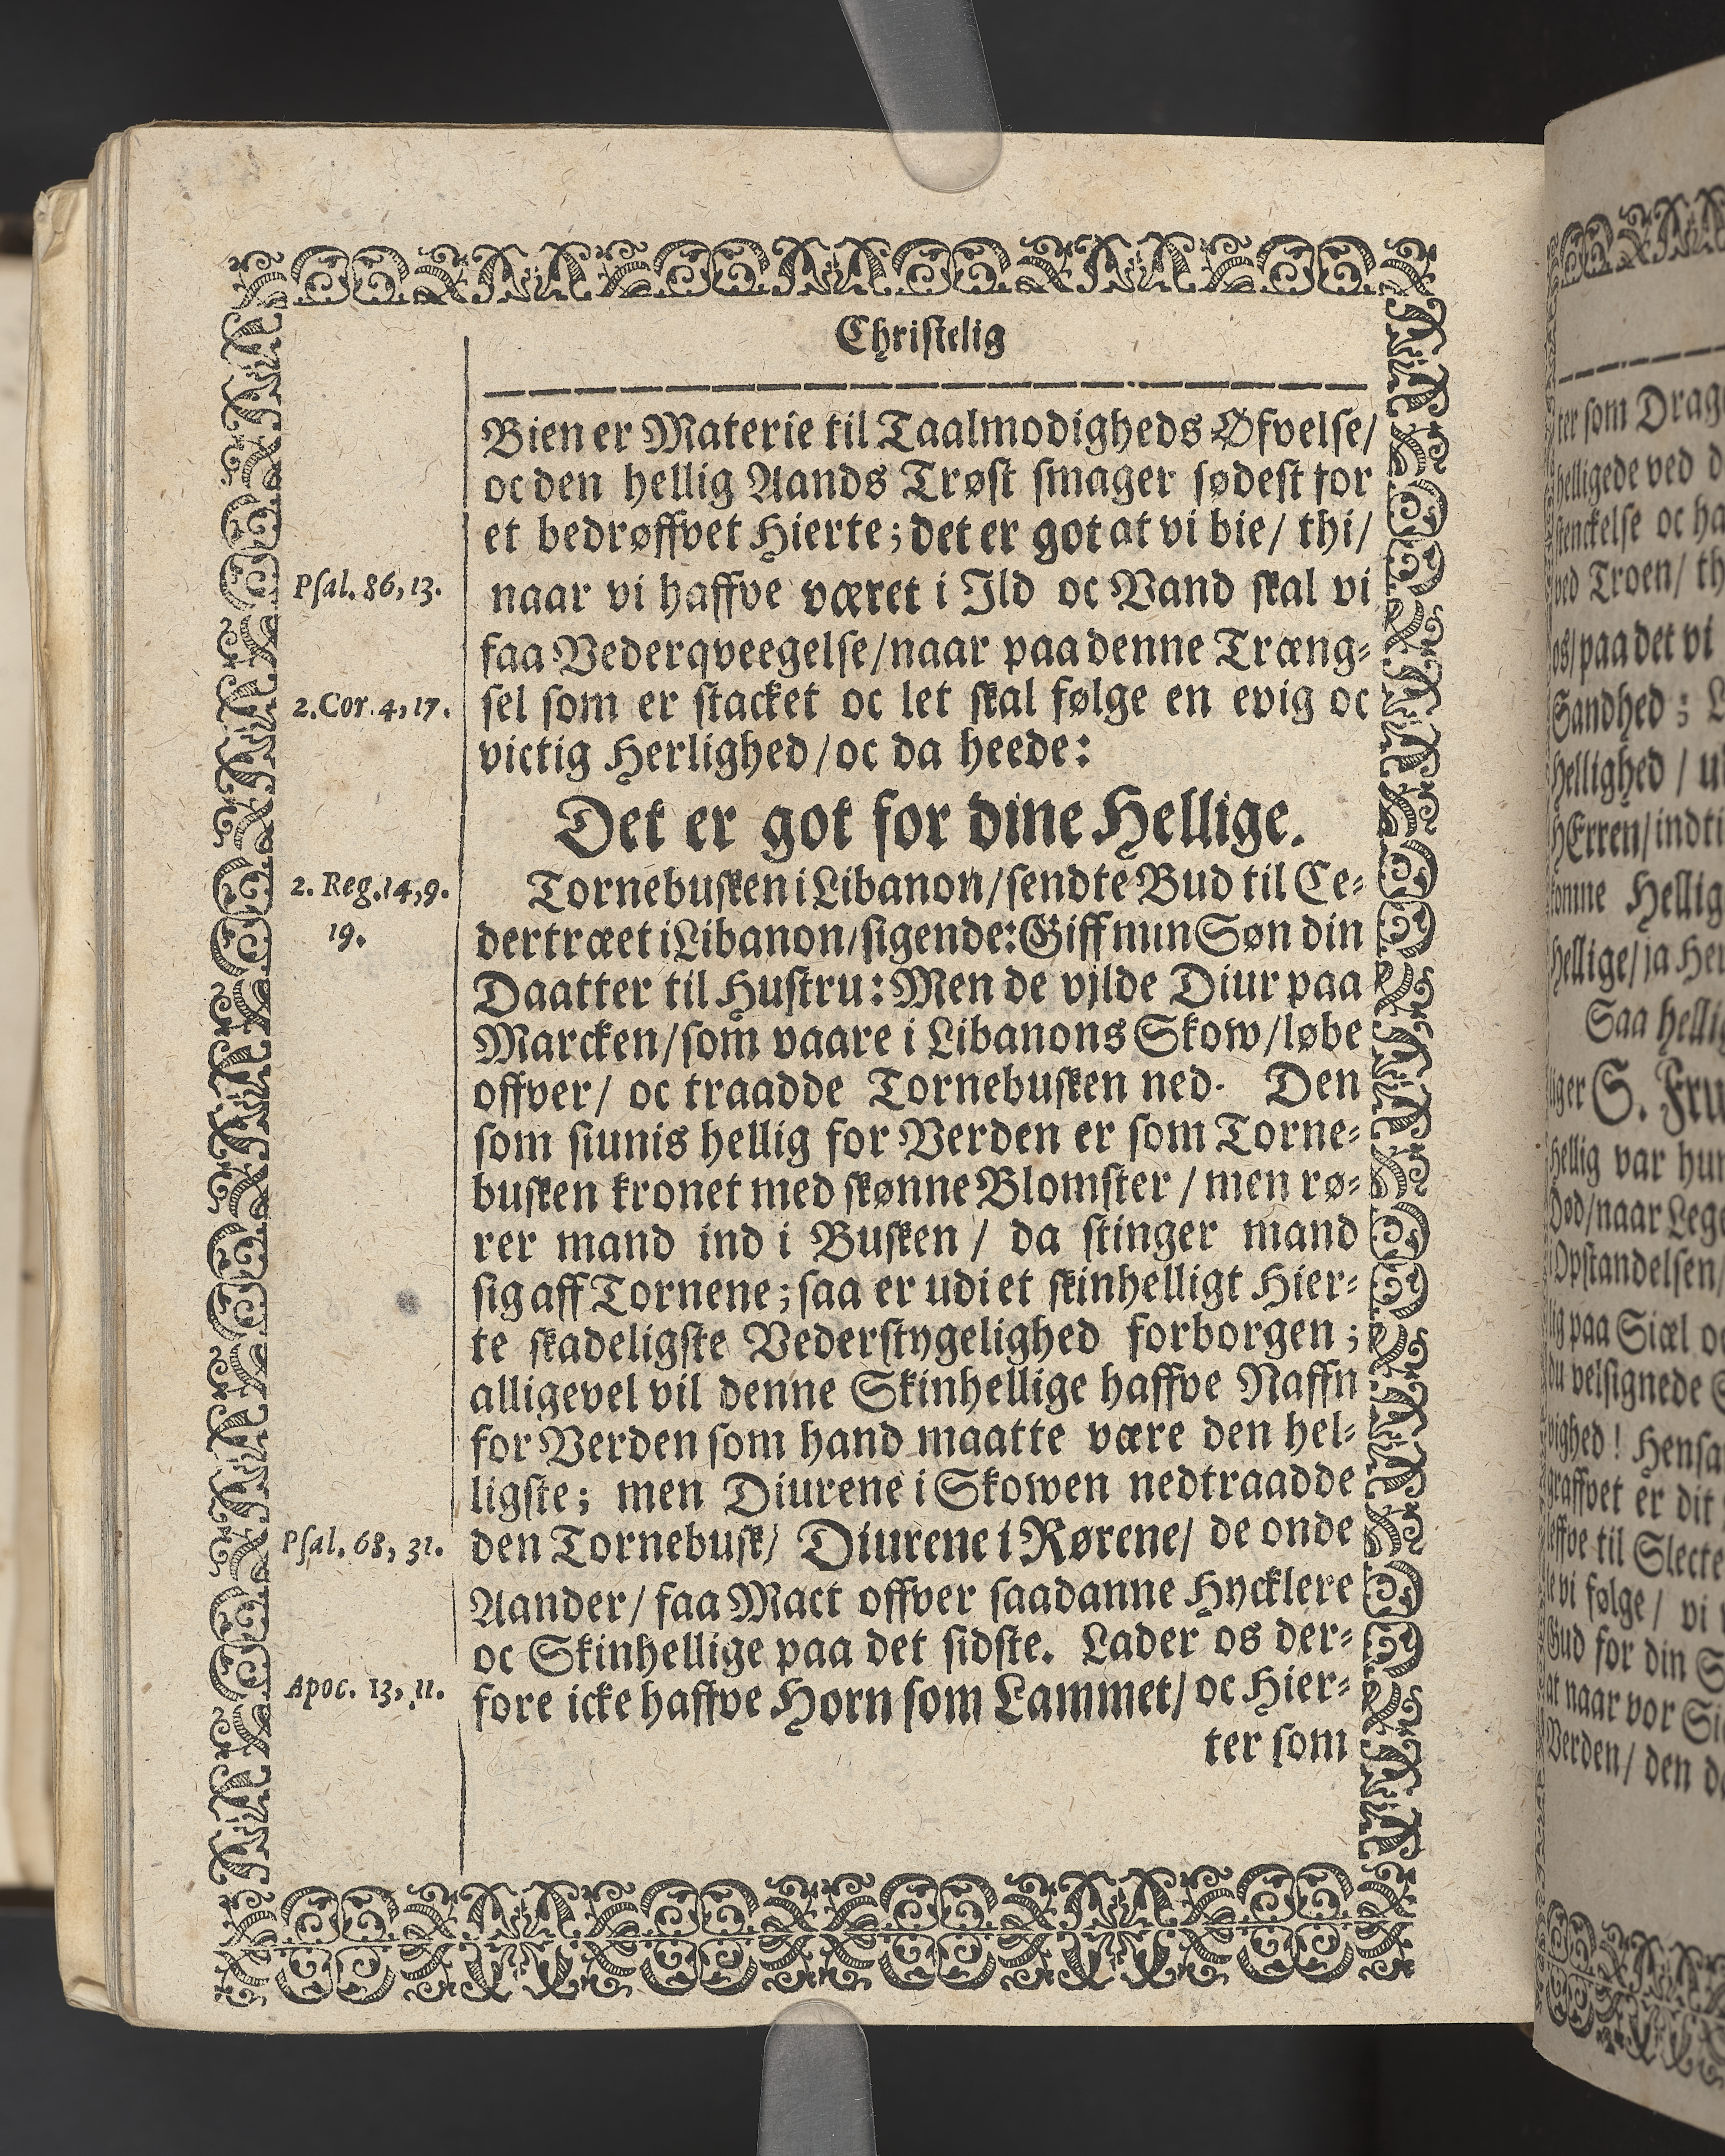 Christelig
Bien er Materie til Taalmodigheds Øfvelse/
oc den hellig Aands Trøst smager sødest for
et bedrøffvet Hierte; det er got at vi bie/ thi/
Psal. 86, 13.
naar vi haffve været i Ild oc Vand skal vi
faa Vederqveegelse/ naar paa denne Træng-
2. Cor. 4, 17.
sel som er stacket oc let skal følge en evig oc
victig Herlighed/ oc da heede:
Det er got for dine Hellige.
2. Reg. 14, 9.
19.
Tornebusken i Libanon/ sendte Bud til Ce-
dertræet i Libanon/ sigende: Giff min Søn din
Daatter til Hustru: Men de vjlde Diur paa
Marcken/ som vaare i Libanons Skow/ løbe
offver/ oc traadde Tornebusken ned. Den
som siunis hellig for Verden er som Torne-
busken kronet med skønne Blomster / men rø-
rer mand ind i Busken / da stinger mand
sig aff Tornene; saa er udi et skinhelligt Hier-
te skadeligste Vederstygelighed forborgen;
alligevel vil denne Skinhellige haffve Naffn
for Verden som hand maatte være den hel-
ligste; men Diurene i Skowen nedtraadde
Psal. 68, 31.
den Tornebusk/ Diurene i Rørene/ de onde
Aander/ faa Mact offver saadanne Hycklere
oc Skinhellige paa det sidste. Lader os der-
Apoc. 13, 11.
fore icke haffve Horn som Lammet/ oc Hier-
ter som
ter som Drag
helligede ved d
stenckelse oc ha
ved Troen/ th
os/ paa det vi
Sandhed; L
Hellighed / u
HErren/ indti
Hellig
hellige/ ja Her
Saa hellig
liger S. Fru
hellig var hun
Død/ naar Lege
Opstandelsen/
lig paa Siæl oc
du velsignede S
vighed! Hensa
graffvet er dit
leffve til Slecte
vi følge/ vi
Gud for din S
at naar vor Si
Verden/ den d